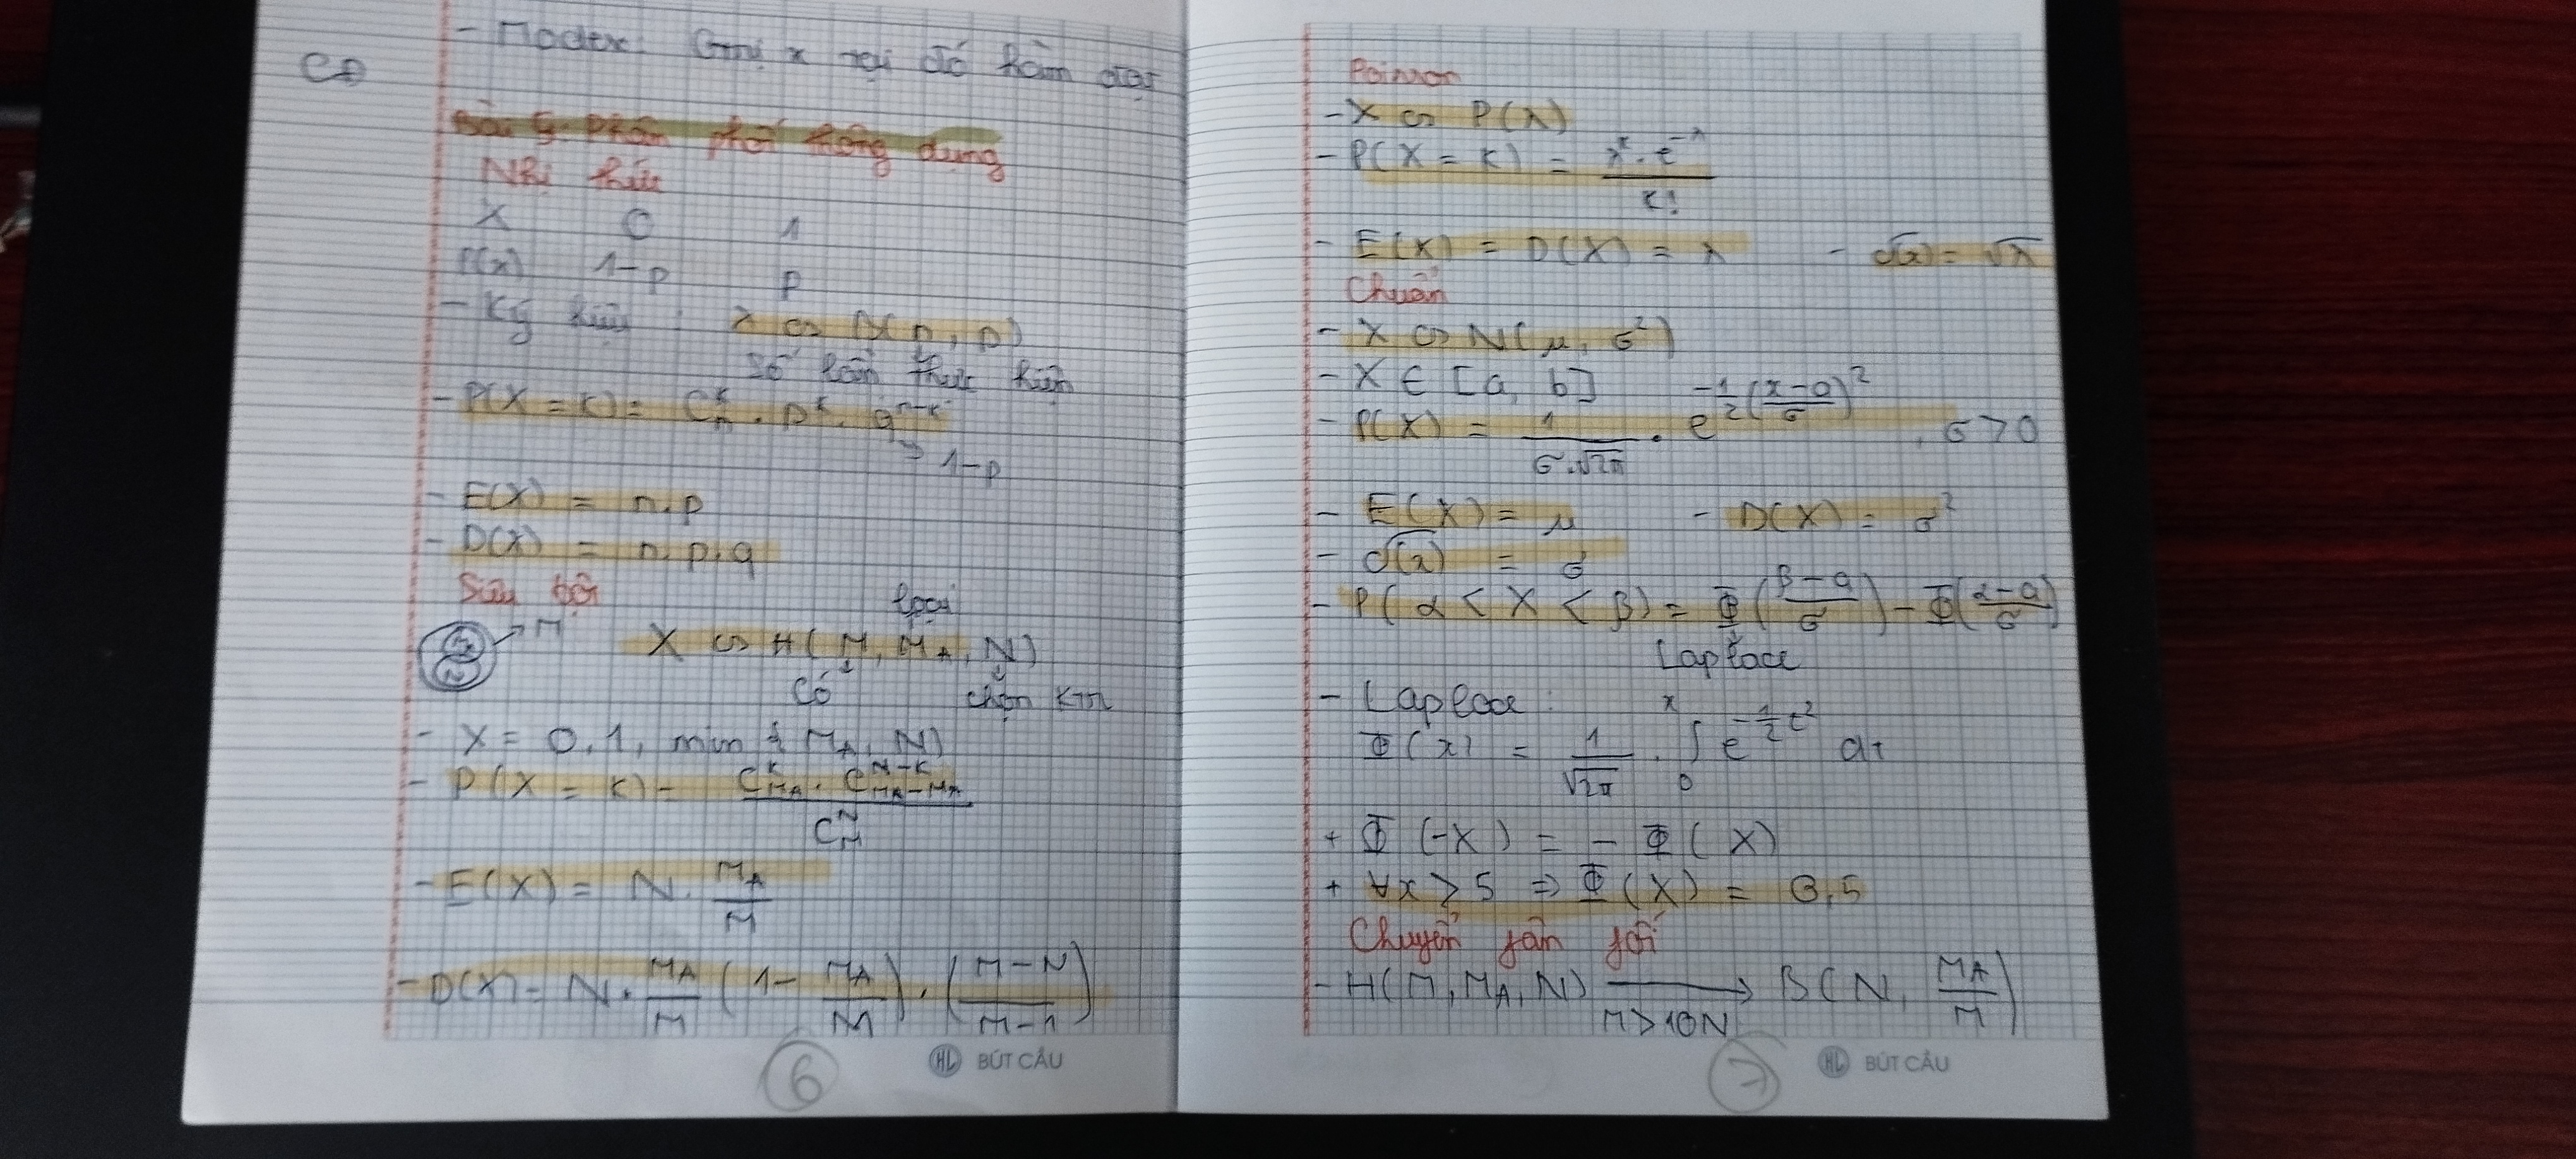 - Modex: Gtrị x tại đó hàm đạt
CĐ
Bài 5. Phân phối thông dụng
Nhị thức
X 0 1
P(x) 1-p p
- Ký hiệu : X ∽ B(n, p)
số lần thực hiện
- P(X = K) = C_n^K . p^K . q^{n-K}
→ 1-p
- E(X) = n.p
- D(X) = n.p.q
Siêu bội
loại
→ M X ∽ H(M, M_A, N)
có chọn
- X = 0, 1, min { M_A, N}
- P(X = K) = \frac{C_{M_A}^K . C_{M_A-M_A}^{N-K}}{C_M^N}
- E(X) = N. \frac{M_A}{M}
- D(X) = N. \frac{M_A}{M} (1 - \frac{M_A}{M}) . (\frac{M-N}{M-1})
6
HL BÚT CẦU
Poisson
- X ∽ P(λ)
- P(X = K) = \frac{λ^K . e^{-λ}}{K!}
- E(X) = D(X) = λ - σ(x) = √λ
Chuẩn
- X ∽ N(μ, σ²)
- X ∈ [a, b]
- P(X) = \frac{1}{σ.√2π} . e^{-\frac{1}{2}(\frac{x-a}{σ})²} , σ > 0
- E(X) = μ - D(X) = σ²
- σ(x) = σ
- P(α < X < β) = Φ(\frac{β-a}{σ}) - Φ(\frac{α-a}{σ})
Laplace
- Laplace :
Φ(x) = \frac{1}{√2π} . ∫_0^x e^{-\frac{1}{2}t²} dt
+ Φ(-X) = - Φ(X)
+ ∀x ≥ 5 ⇒ Φ(X) = 0,5
Chuyển phân phối
- H(M, M_A, N) \xrightarrow{M>10N} B(N, \frac{M_A}{M})
7
HL BÚT CẦU